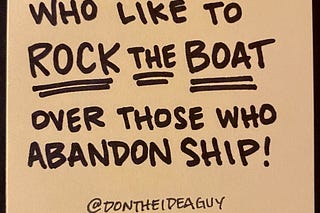 WHO LIKE TO
ROCK THE BOAT
OVER THOSE WHO
ABANDON SHIP!
@DONTHEIDEAGUY